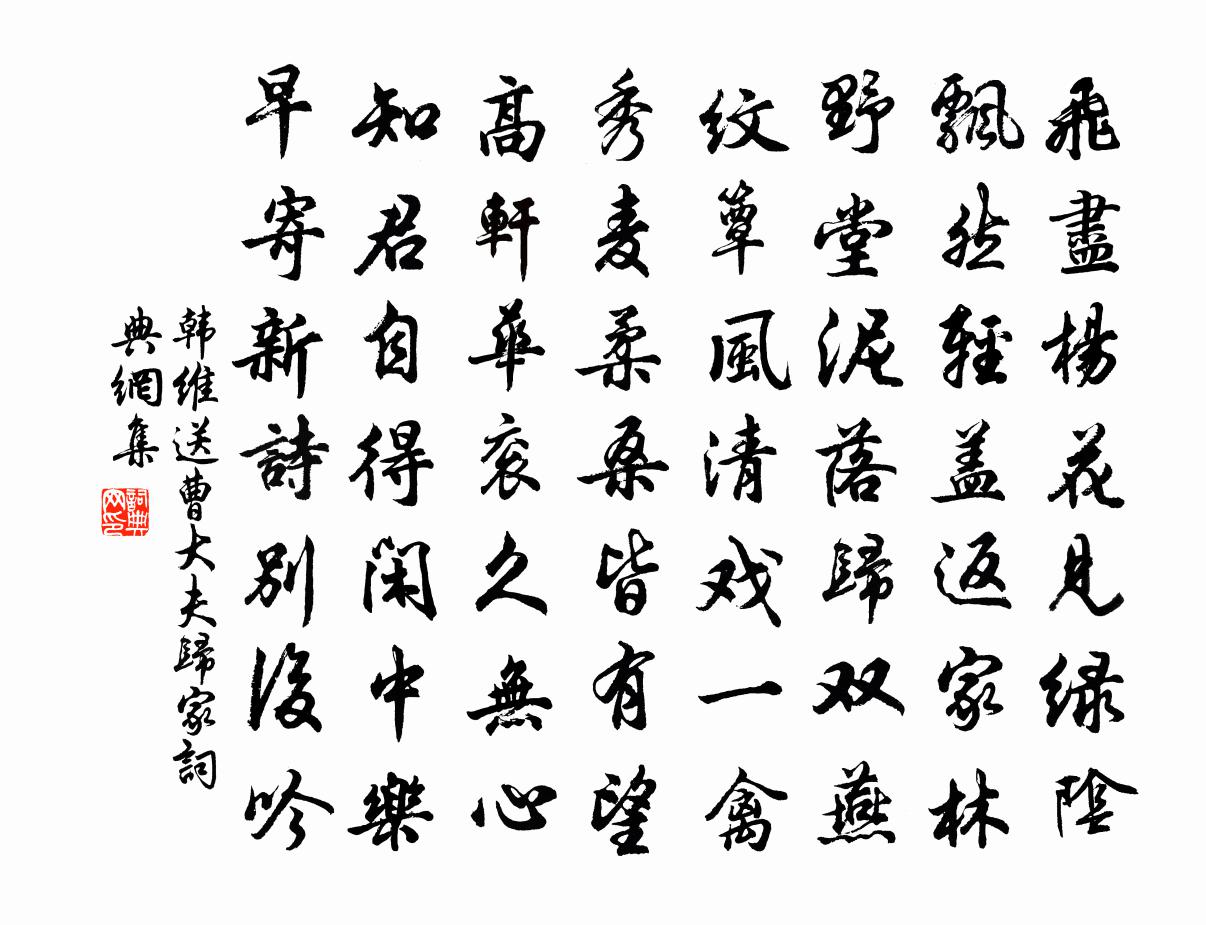 飛盡楊花見緑陰
飄然輕盖返家林
野堂泥落歸双燕
紋簟風清戏一禽
秀麦柔桑皆有望
高軒華衮久無心
知君自得閑中樂
早寄新詩別後吟
韩維送曹大夫歸家詞
典網集
詞典
网印